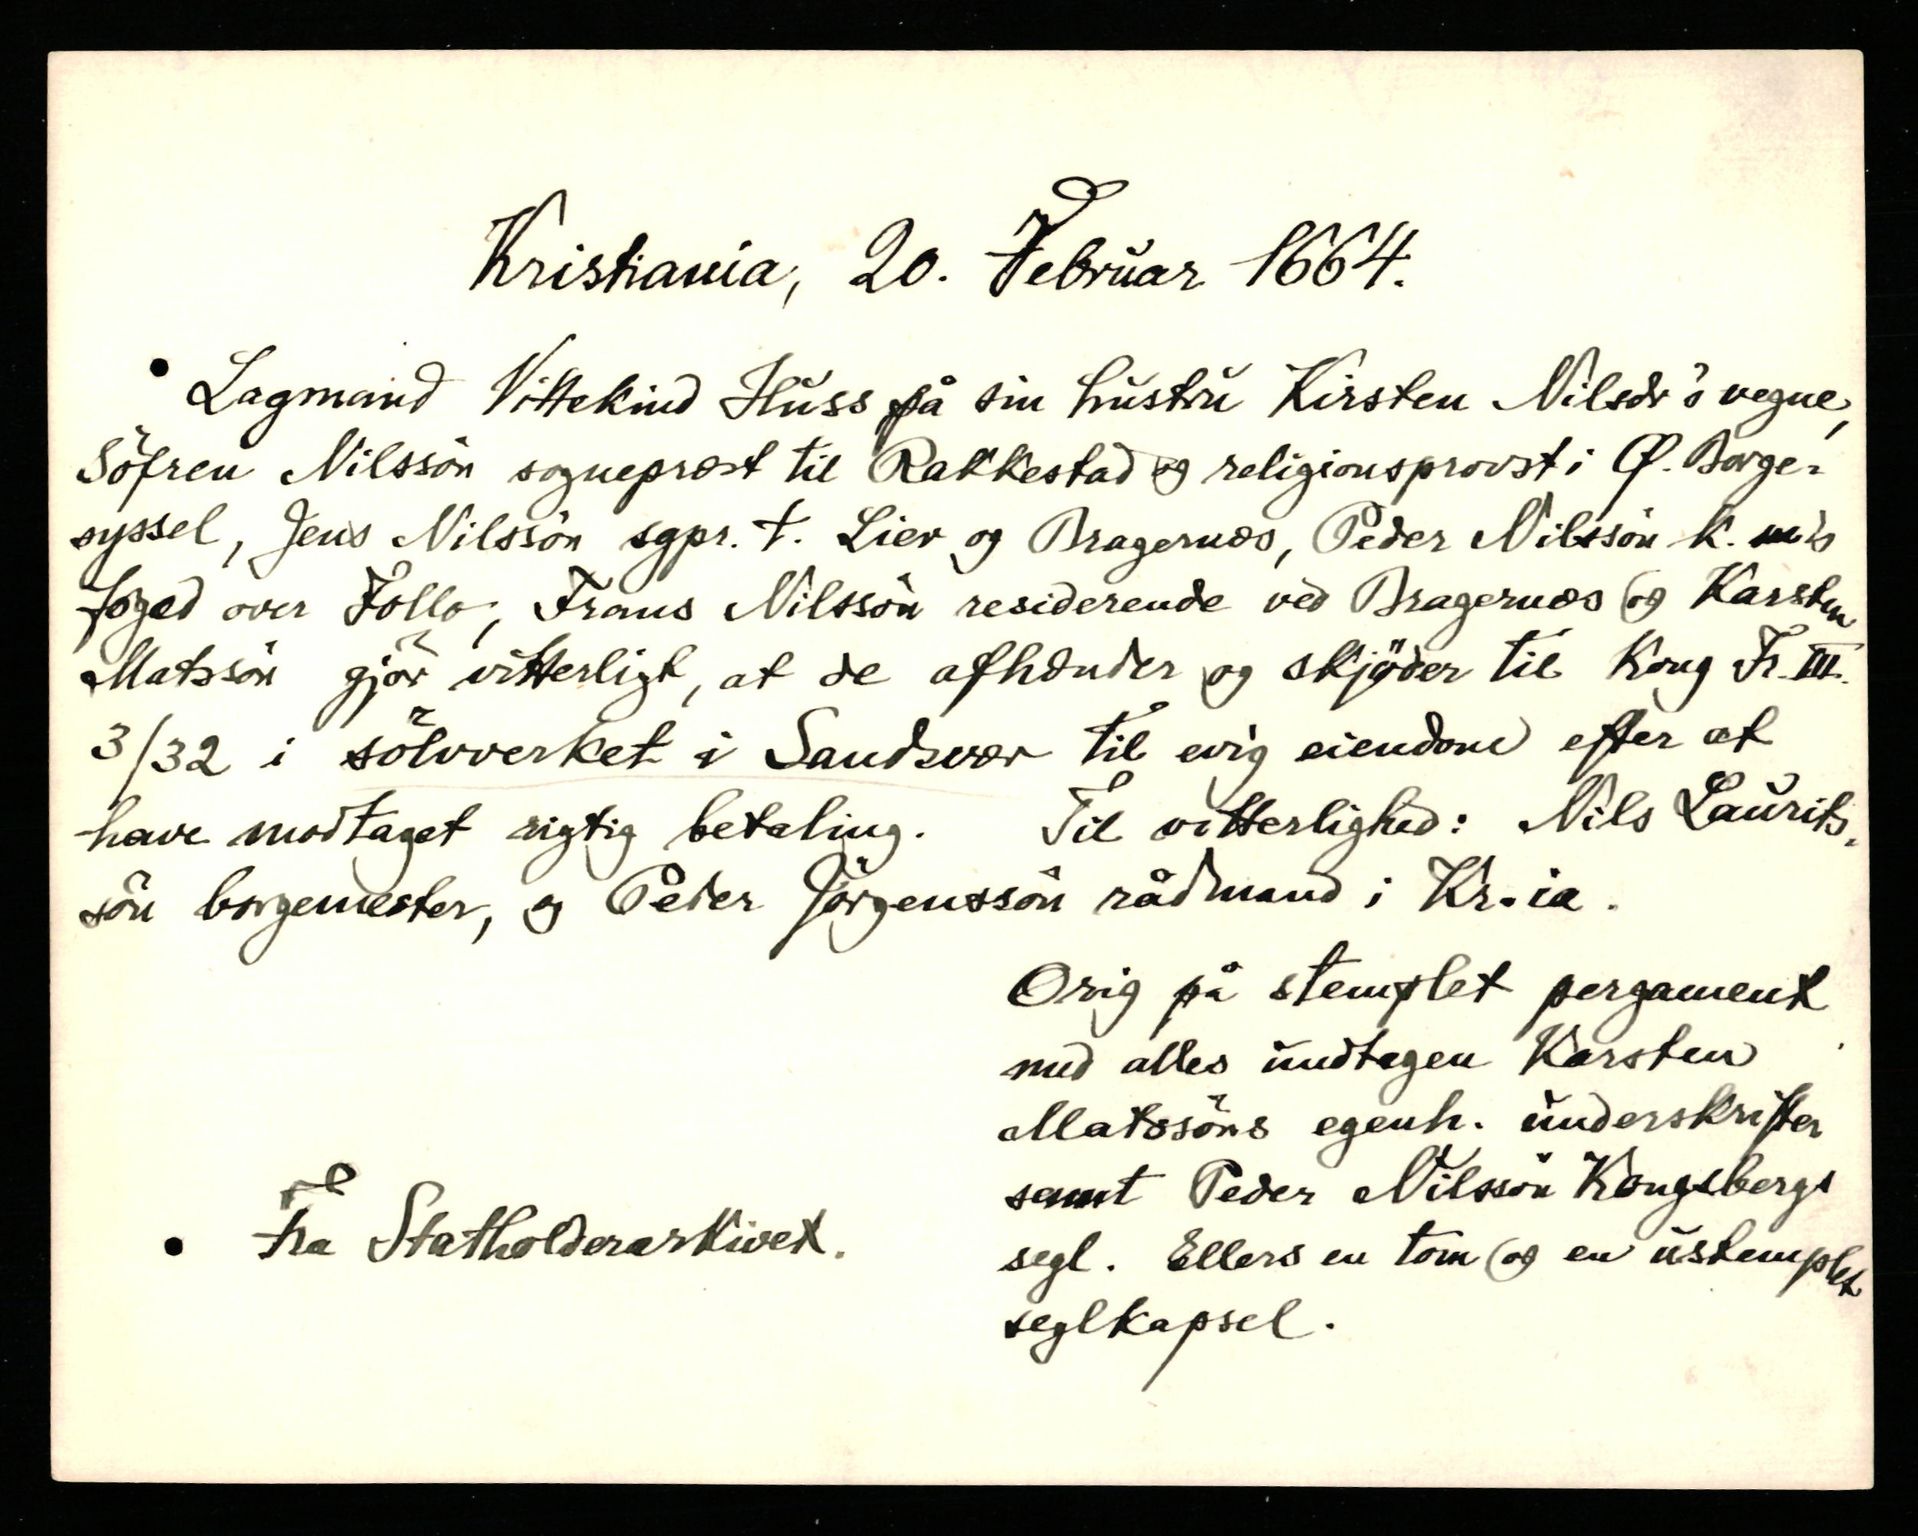 Kristiania, 20. Februar 1664.
Lagmand Vittekind Huss på sin hustru Kirsten Nilsdr's vegne,
Söfren Nilssön sognepræst til Rakkestad og religionsprovst i Ø. Borge-
syssel, Jens Nilssön sgpr. t. Lier og Bragernæs, Peder Nilssön k. m's
foged over Follo, Frans Nilssön residerende ved Bragernæs og Karsten
Matssön gjör vitterligt, at de afhænder og skjøder til Kong Fr. III.
3/32 i sölvverket i Sandsvær til evig eiendom efter at
have modtaget rigtig betaling. Til vitterlighed: Nils Laurits-
sön borgemester, og Peder Jörgenssön rådmand i Kr.ia.
Orig på stemplet pergament
med alles undtagen Karsten
Matssöns egenh. underskrifter
samt Peder Nilssön Kongsbergs
segl. Ellers en tom og en ustemplet
seglkapsel.
Fra Statholderarkivet.